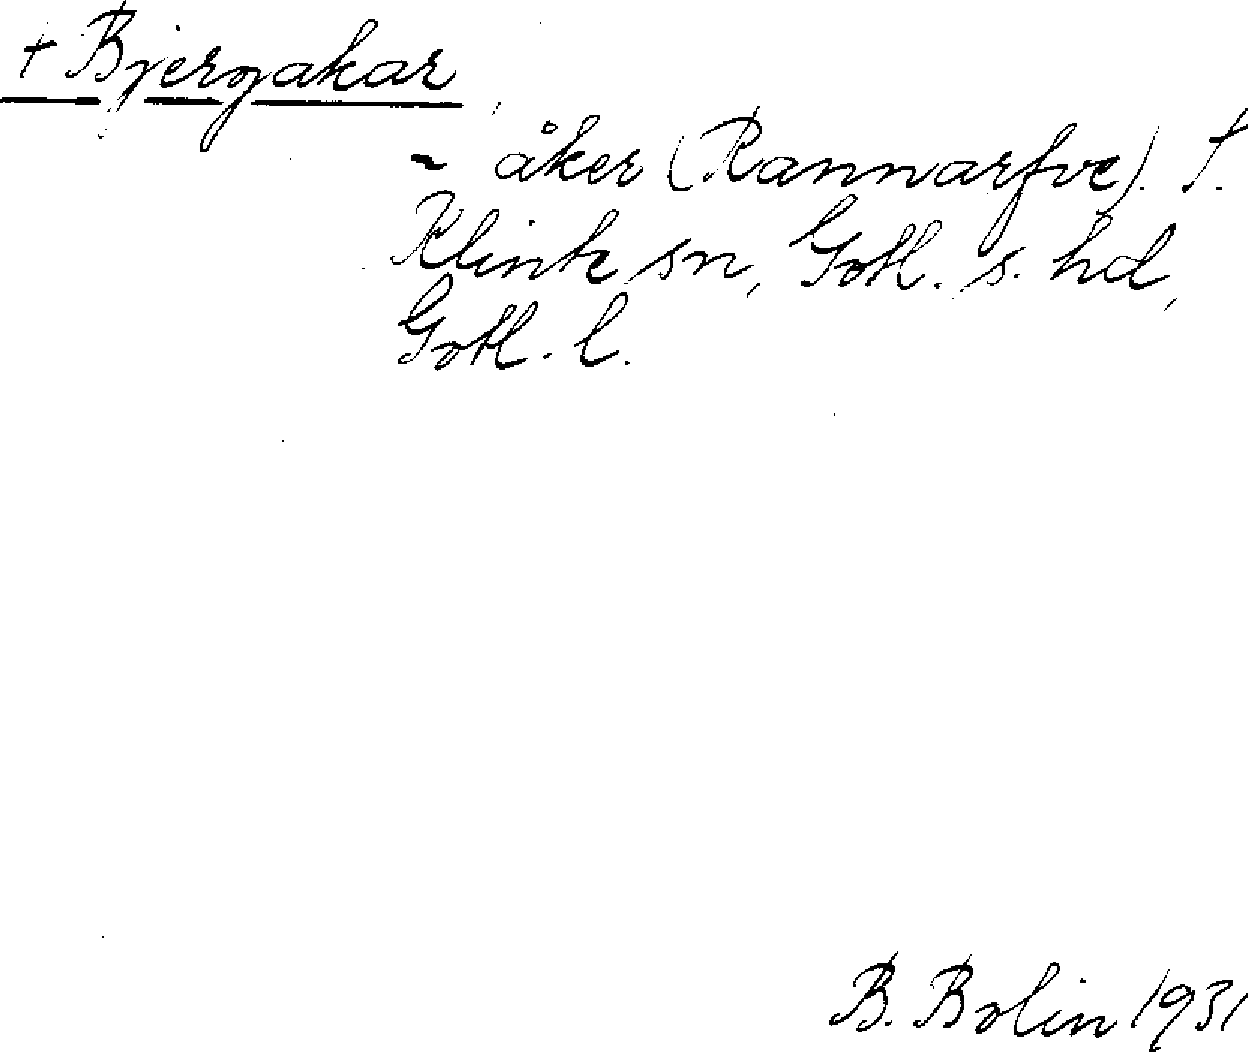 + Bjergakar
~ åker (Rannarfve). †.
Klinte sn, Gotl. s. hd,
Gotl. l.
B. Bolin 1931